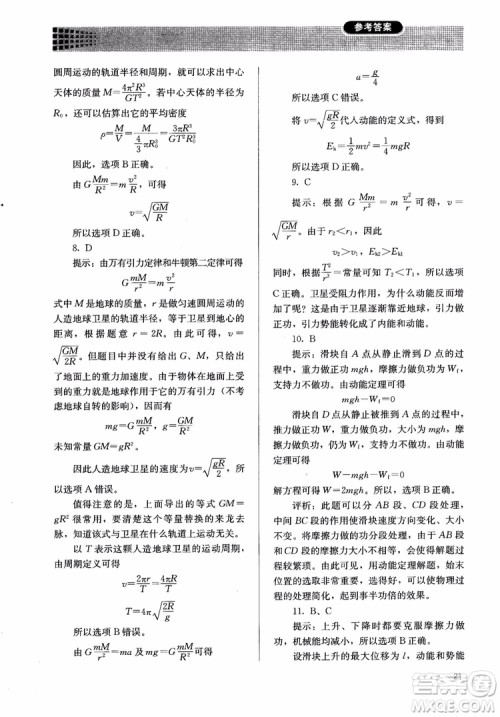 参考答案
圆周运动的轨道半径和周期，可以求出中心
天体的质量 M=4π²r³/GT²，若天体的平均半径
R₀，还可以估算出它的平均密度
ρ=M/V=M/(4/3 πR₀³)=3πR³/GT²R₀³
因此，选项 B 正确。
由 G Mm/r²=m v²/r，可得
v=√(GM/r)
所以选项 D 正确。
8. D
提示：由万有引力定律和牛顿第二定律可得
G mM/r²=m v²/r
式中 M 是地球的质量，r 是做匀速圆周运动的
人造地球卫星的轨道半径，等于卫星到地心的
距离，根据题意 r=2R。所以，v=√(GM/r)=
√(GM/2R)。但题目中没有给出 G、M，只给出
了地面上的重力加速度。由于物体在地面上受
的重力就是地球对它的万有引力（不考虑地球
自转的影响），因此有
mg=G mM/R²，g=GM/R²
未知常量
GM=gR²
因此人造地球卫星的速度为 v=√(GM/2R)=√(gR/2)。
所以选项 A 错误。
值得注意的是，上面导出的等式 GM=
gR² 很常用，今后推导公式时要搞清它的来龙去
脉，知道该式与卫星在轨道上运动无关。
以 T 表示这颗人造地球卫星的运动周期，
由周期定义可得
v=2πr/T=4πR/T
T=4π√(2R/g)
所以选项 B 正确。
由 G mM/r²=ma 及 g=GM/R²，可得
a=g/4
所以选项 C 错误。
将 v=√(gR/2)代入动能的定义式，得
Eₖ=1/2 mv²=1/4 mgR
所以选项 D 正确。
9. C
提示：根据 G Mm/r²=m v²/r，可得 v=
√(GM/r)。由于 r₂<r₁，因此
v₂>v₁，Eₖ₂>Eₖ₁
同时，根据 T²/r³=常量可知 T₂<T₁，所以选项
C 正确。卫星受阻力作用，为什么动能反而增
加了呢？这是由于卫星逐渐靠近地球，引力做
正功，引力势能转化成了内能和动能。
10. B
提示：滑块由 A 点从静止滑到 D 点过程
中，重力做功 mgh，摩擦力做负功为 W₁，
支持力不做功。由动能定理可得
mgh－W₁=0
滑块由 D 点回到 A 点的过程中，重力做负
功 mgh，摩擦力做负功仍为 W₁，外力推滑块做
功为 W，支持力仍不做功。根据动能
定理可得
W－mgh－W₁=0
解方程可得 W=2mgh，所以选项 B 正确。
评析：本题不需要分 AB 段、CD 段处理，
也不要把摩擦力做的功分 AB 段和 CD 段处理，
和 CD 段的摩擦力做功分开处理，那样会使
过程较繁琐。根据功能原理，运用动能定理，始末
位置的选择是十分重要的，它可以使物理
过程的处理简化，收到事半功倍的效果。
11. B、C
提示：上升、下降时都要克服摩擦力做
功，机械能均减小，所以选项 A 错误。
设滑块上升的最大位移为 l，动能和势能
21